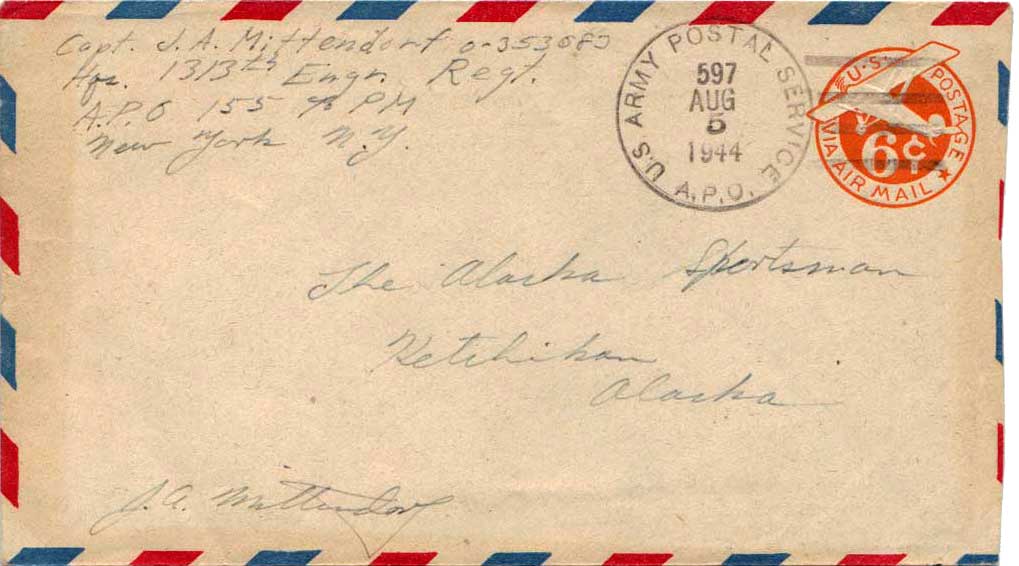 Capt. J. A. Mittendorf O-353683
Hqs. 1313th Engr. Regt.
A.P.O 155 % P.M
New York N.Y.
U.S. ARMY POSTAL SERVICE
597
AUG
5
1944
A.P.O.
U.S. POSTAGE
6¢
VIA AIR MAIL
The Alaska Sportsman
Ketchikan
Alaska
J. A. Mittendorf